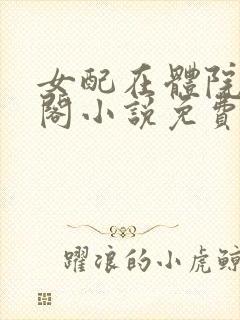 女配在體院
閣小說免費
躍浪的小虎鯨